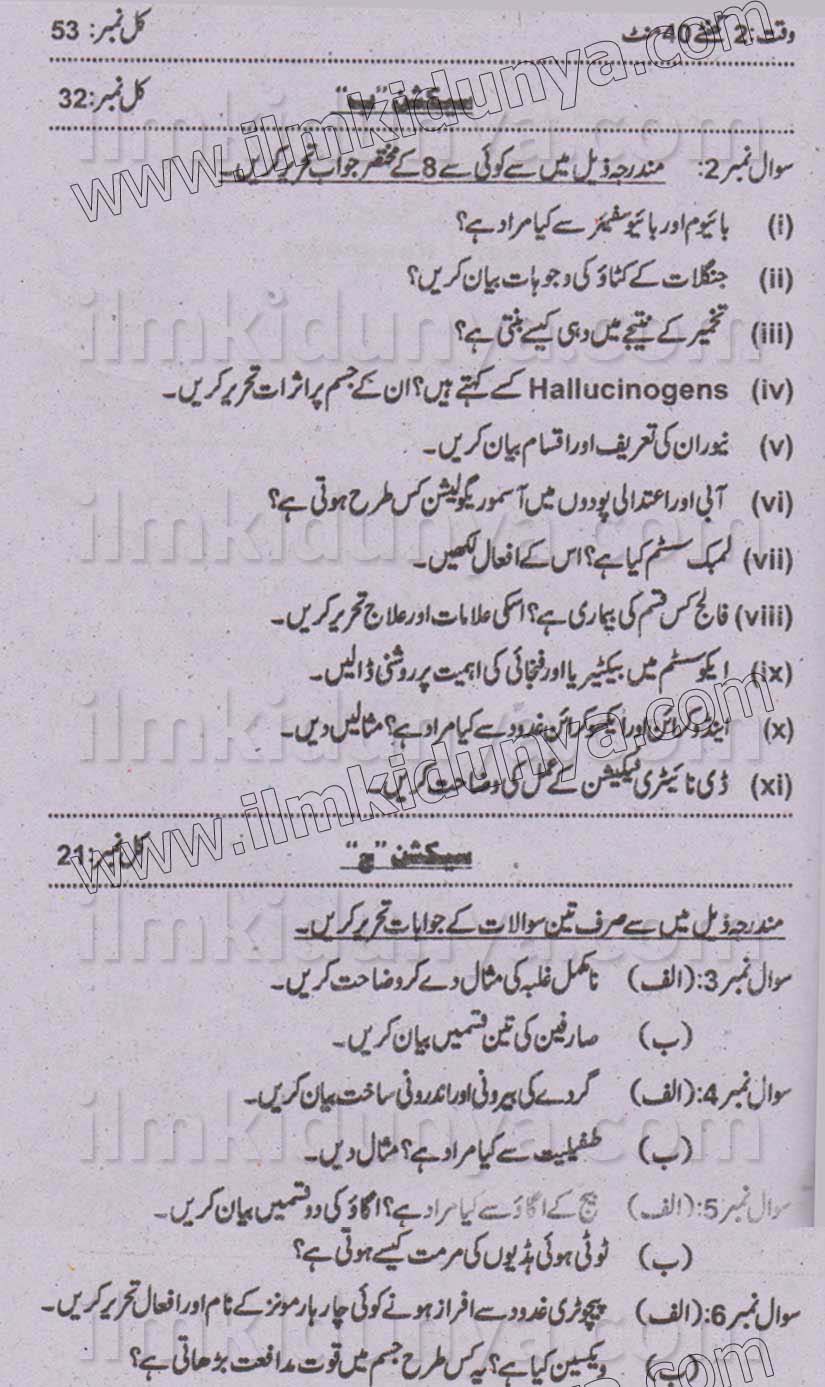 وقت: 2 گھنٹے 40 منٹ کل نمبر: 53
سیکشن "ب" کل نمبر: 32
سوال نمبر 2: مندرجہ ذیل میں سے کوئی سے 8 کے مختصر جواب تحریر کریں۔
(i) بائیوم اور بائیوسفیئر سے کیا مراد ہے؟
(ii) جنگلات کے کٹاؤ کی وجوہات بیان کریں؟
(iii) تخمیر کے نتیجے میں دہی کیسے بنتی ہے؟
(iv) Hallucinogens کسے کہتے ہیں؟ ان کے جسم پر اثرات تحریر کریں۔
(v) نیوران کی تعریف اور اقسام بیان کریں۔
(vi) آبی اور اعتدالی پودوں میں آسموریگولیشن کس طرح ہوتی ہے؟
(vii) لمبک سسٹم کیا ہے؟ اس کے افعال لکھیں۔
(viii) فالج کس قسم کی بیماری ہے؟ اسکی علامات اور علاج تحریر کریں۔
(ix) ایکوسسٹم میں بیکٹیریا اور فنجائی کی اہمیت پر روشنی ڈالیں۔
(x) اینڈوکرائن اور ایکسوکرائن غدود سے کیا مراد ہے؟ مثالیں دیں۔
(xi) ڈی نائیٹری فیکیشن کے عمل کی وضاحت کریں۔
سیکشن "ج" کل نمبر: 21
مندرجہ ذیل میں سے صرف تین سوالات کے جوابات تحریر کریں۔
سوال نمبر 3: (الف) نامکمل غلبہ کی مثال دے کر وضاحت کریں۔
(ب) صارفین کی تین قسمیں بیان کریں۔
سوال نمبر 4: (الف) گردے کی بیرونی اور اندرونی ساخت بیان کریں۔
(ب) طفیلیت سے کیا مراد ہے؟ مثال دیں۔
سوال نمبر 5: (الف) بیج کے اگاؤ سے کیا مراد ہے؟ اگاؤ کی دو قسمیں بیان کریں۔
(ب) ٹوٹی ہوئی ہڈیوں کی مرمت کیسے ہوتی ہے؟
سوال نمبر 6: (الف) پیچوٹری غدود سے افراز ہونے کوئی چار ہارمونز کے نام اور افعال تحریر کریں۔
(ب) ویکسین کیا ہے؟ یہ کس طرح جسم میں قوت مدافعت بڑھاتی ہے؟
www.ilmkidunya.com
www.ilmkidunya.com
www.ilmkidunya.com
ilmkidunya.com
ilmkidunya.com
ilmkidunya.com
ilmkidunya.com
ilmkidunya.com
ilmkidunya.com
ilmkidunya.com